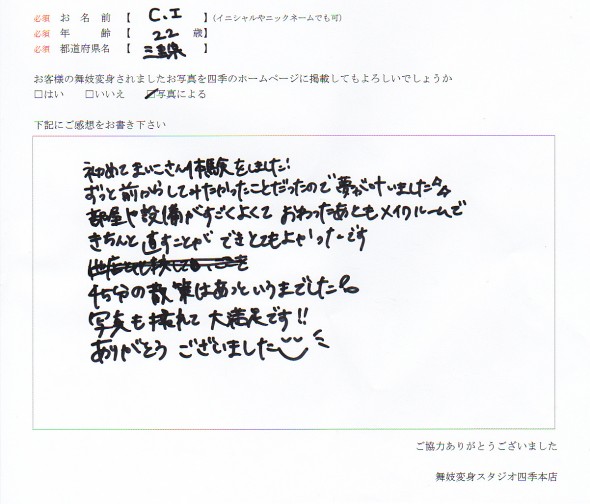 必須 お名前 【 C.I 】(イニシャルやニックネームでも可)
必須 年齢 【 22 歳】
必須 都道府県名 【 三重県 】
お客様の舞妓変身されましたお写真を四季のホームページに掲載してもよろしいでしょうか
□はい □いいえ ☑写真による
下記にご感想をお書き下さい
初めてまいこさん体験をしました!
ずっと前からしてみたかったことだったので夢が叶いました
部屋や設備がすごくよくて おわったあともメイクルームで
きちんと直すことが できとてもよかったです
45分の散策はあっというまでした
写真も撮れて 大満足です!!
ありがとう ございました
ご協力ありがとうございました
舞妓変身スタジオ四季本店